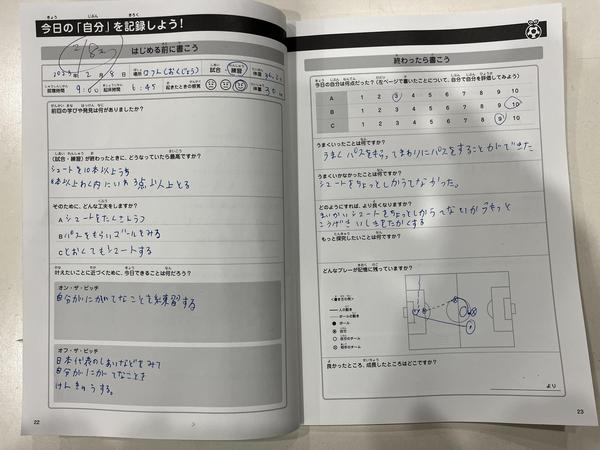 今日の「自分」を記録しよう！
はじめる前に書こう
2月8日 場所
試合
練習
体温
就寝時間 9:00 起床時間 6:45 起きたときの感覚
体重
前回の学びや発見は何がありましたか？
〈試合・練習〉が終わったときに、どうなっていたら最高ですか？
シュートを10本以上うち
8本以上わく内にいれ 3点以上とる
そのために、どんな工夫をしますか？
A シュートをたくさんうつ
B パスをもらいゴールをみる
C とおくてもシュートする
叶えたいことに近づくために、今日できることは何だろう？
オン・ザ・ピッチ
自分がにがてなことを練習する
オフ・ザ・ピッチ
日本代表のしあいなどをみて
自分がにがてなことを
けんきゅうする。
22
終わったら書こう
今日の自分は何点だった？（左ページで書いたことについて、自分で自分を評価してみよう）
A 1 2 3 4 5 6 7 8 9 10
B 1 2 3 4 5 6 7 8 9 10
C 1 2 3 4 5 6 7 8 9 10
うまくいったことは何ですか？
うまくパスをもらってまわりにパスをすることができた
うまくいかなかったことは何ですか？
シュートをちょっとしかうてなかった。
どのようにすれば、より良くなりますか？
まいかいシュートをちょっとしかうてないからもっと
こうげきいしきをたかくする
もっと探究したいことは何ですか？
どんなプレーが記憶に残っていますか？
〈書き方の例〉
人の動き
ボールの動き
ボール
自分
自分のチーム
相手のチーム
良かったところ、成長したところはどこですか？
より
23